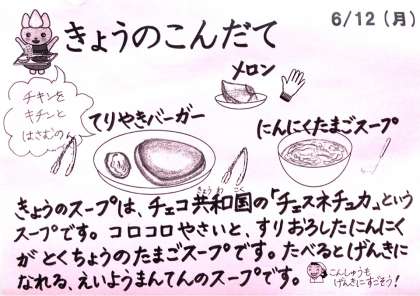 きょうのこんだて
6/12(月)
チキンを
キチンと
はさむの
メロン
てりやきバーガー
にんにくたまごスープ
きょうのスープは、チェコ共和国の「チェスネチュカ」という
きょうわこく
スープです。コロコロやさいと、すりおろしたにんにく
がとくちょうのたまごスープです。たべるとげんきに
なれる、えいようまんてんのスープです。
こんしゅうも
げんきにすごそう!